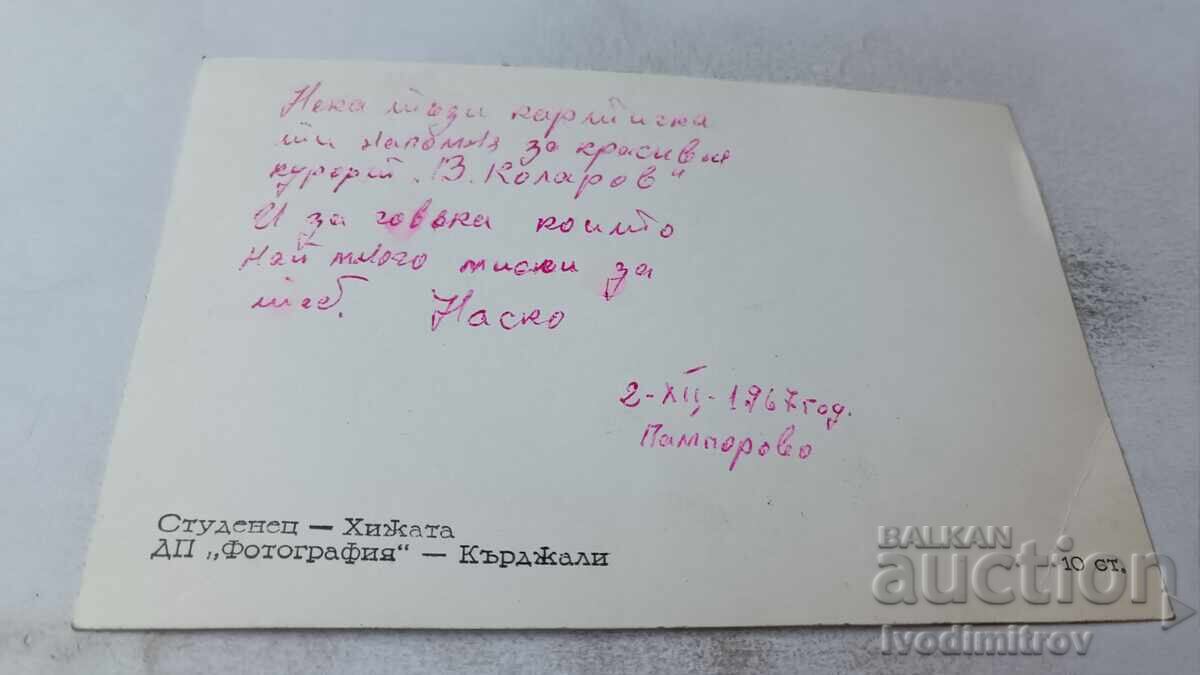 Нека тази картичка
ти напомня за красивия
курорт „В. Коларов"
И за човека който
най много мисли за
теб. Наско
2-XII-1967 год.
Пампорово
Студенец — Хижата
ДП „Фотография" — Кърджали
10 ст.
BALKAN
auction
Ivodimitrov